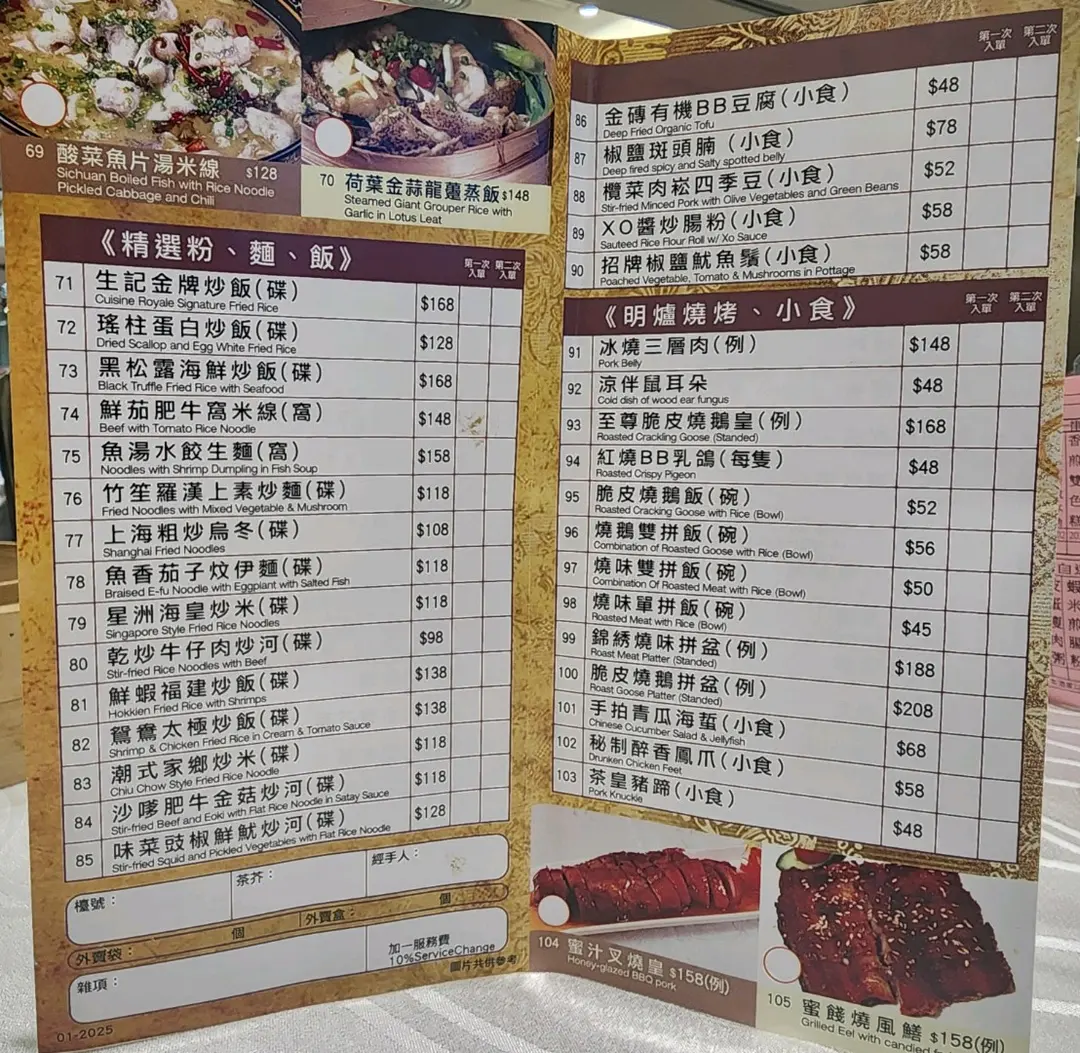 69 酸菜魚片湯米線 $128
Sichuan Boiled Fish with Rice Noodle
Pickled Cabbage and Chili
70 荷葉金蒜龍躉蒸飯 $148
Steamed Giant Grouper Rice with
Garlic in Lotus Leat
《精選粉、麵、飯》 第一次入單 第二次入單
71 生記金牌炒飯(碟) $168
Cuisine Royale Signature Fried Rice
72 瑤柱蛋白炒飯(碟) $128
Dried Scallop and Egg White Fried Rice
73 黑松露海鮮炒飯(碟) $168
Black Truffle Fried Rice with Seafood
74 鮮茄肥牛窩米線(窩) $148
Beef with Tomato Rice Noodle
75 魚湯水餃生麵(窩) $158
Noodles with Shrimp Dumpling in Fish Soup
76 竹笙羅漢上素炒麵(碟) $118
Fried Noodles with Mixed Vegetable & Mushroom
77 上海粗炒烏冬(碟) $108
Shanghai Fried Noodles
78 魚香茄子炆伊麵(碟) $118
Braised E-fu Noodle with Eggplant with Salted Fish
79 星洲海皇炒米(碟) $118
Singapore Style Fried Rice Noodles
80 乾炒牛仔肉炒河(碟) $98
Stir-fried Rice Noodles with Beef
81 鮮蝦福建炒飯(碟) $138
Hokkien Fried Rice with Shrimps
82 鴛鴦太極炒飯(碟) $138
Shrimp & Chicken Fried Rice in Cream & Tomato Sauce
83 潮式家鄉炒米(碟) $118
Chiu Chow Style Fried Rice Noodle
84 沙嗲肥牛金菇炒河(碟) $118
Stir-fried Beef and Eoki with Flat Rice Noodle in Satay Sauce
85 味菜豉椒鮮魷炒河(碟) $128
Stir-fried Squid and Pickled Vegetables with Flat Rice Noodle
檯號： 茶芥： 經手人：
外賣袋： 個 外賣盒： 個
雜項： 加一服務費
10%ServiceChange
圖片共供參考
01-2025
第一次入單 第二次入單
86 金磚有機BB豆腐(小食) $48
Deep Fried Organic Tofu
87 椒鹽斑頭腩(小食) $78
Deep fired spicy and Salty spotted belly
88 欖菜肉崧四季豆(小食) $52
Stir-fried Minced Pork with Olive Vegetables and Green Beans
89 XO醬炒腸粉(小食) $58
Sauteed Rice Flour Roll w/ Xo Sauce
90 招牌椒鹽魷魚鬚(小食) $58
Poached Vegetable, Tomato & Mushrooms in Pottage
《明爐燒烤、小食》 第一次入單 第二次入單
91 冰燒三層肉(例) $148
Pork Belly
92 涼伴鼠耳朵 $48
Cold dish of wood ear fungus
93 至尊脆皮燒鵝皇(例) $168
Roasted Crackling Goose (Standed)
94 紅燒BB乳鴿(每隻) $48
Roasted Crispy Pigeon
95 脆皮燒鵝飯(碗) $52
Roasted Cracking Goose with Rice (Bowl)
96 燒鵝雙拼飯(碗) $56
Combination of Roasted Goose with Rice (Bowl)
97 燒味雙拼飯(碗) $50
Combination Of Roasted Meat with Rice (Bowl)
98 燒味單拼飯(碗) $45
Roasted Meat with Rice (Bowl)
99 錦綉燒味拼盆(例) $188
Roast Meat Platter (Standed)
100 脆皮燒鵝拼盆(例) $208
Roast Goose Platter (Standed)
101 手拍青瓜海蜇(小食) $68
Chinese Cucumber Salad & Jellyfish
102 秘制醉香鳳爪(小食) $58
Drunken Chicken Feet
103 茶皇豬蹄(小食) $48
Pork Knuckle
104 蜜汁叉燒皇 $158(例)
Honey-glazed BBQ pork
105 蜜餞燒風鱔 $158(例)
Grilled Eel with candied